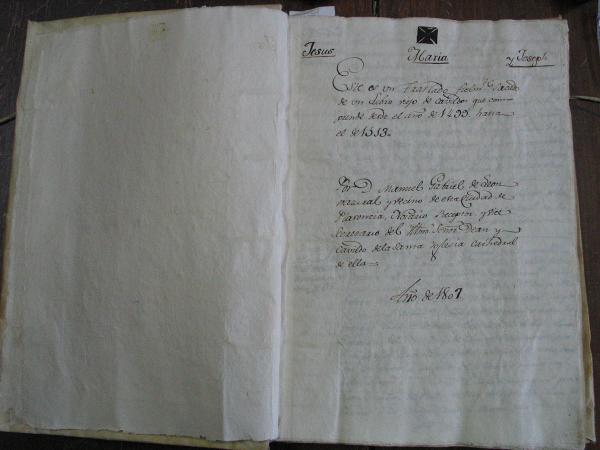 Jesus Maria y Joseph
Este es un Traslado fielm.te sacado
de un Libro viejo de Cavildo que com-
prende desde el año de 1499 hasta
el de 1513.
Por D. Manuel Gabriel de Leon
natural y vecino de esta Ciudad de
Plasencia, Notario Recep.or y Vice
Secretario del Ill.mo Señor Dean y
Cavildo de la Santa Yglesia Cathedral
de ella.
Año de 1807